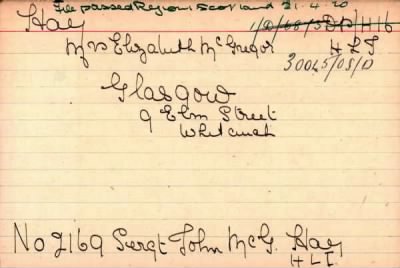 File passed Region Scotland 21.4.20
Hay
Mrs Elizabeth McGregor H L I
30045/05/D
Glasgow
9 Elm Street
Whiteinch
No 2169 Sergt John McG. Hay
H L I